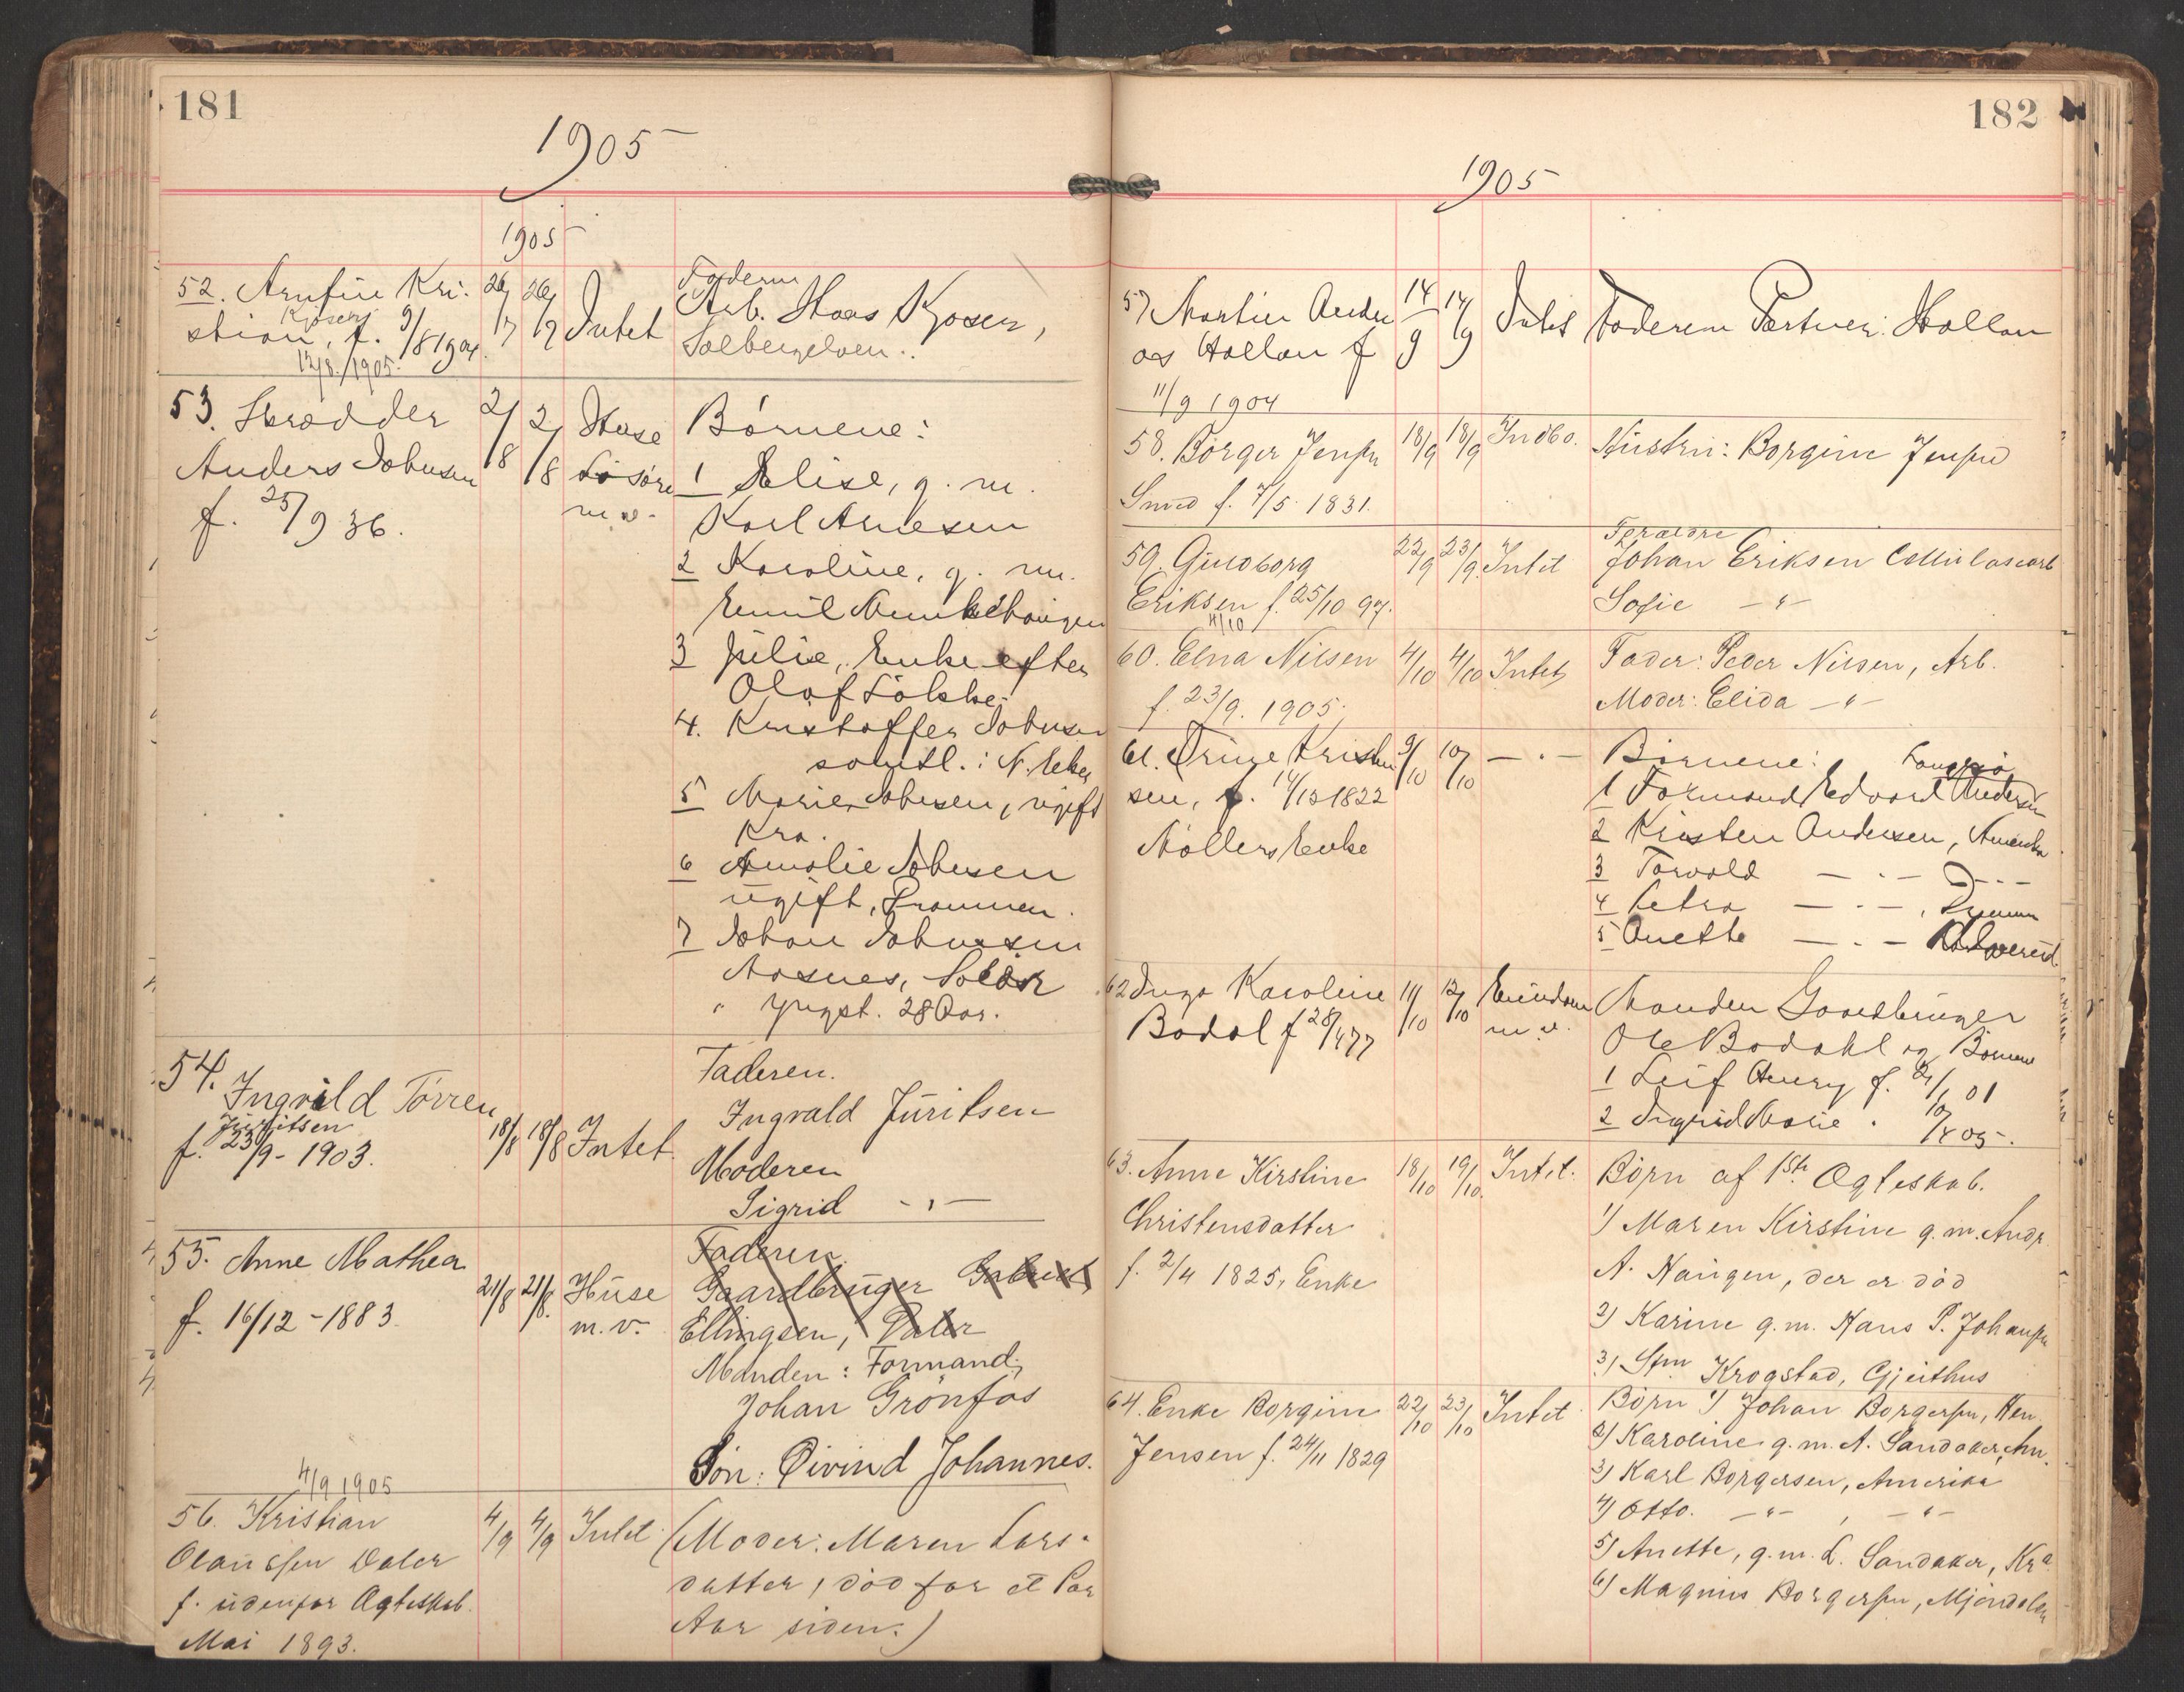 181
1905
1905
52. Arnfin Kri-
stian, f. 9/8 1904.
Kjøsen
12/8. 1905.
26/7 26/7 Intet
Faderen
Arb. Haas Kjøsen,
Solbergelven..
53. Skrædder
Anders Johnsen
f. 25/9 36.
2/8 2/8 Huse
Løsøre
m. v.
Børnene:
1 Elise, g. m.
Karl Arnesen
2 Karoline, g. m.
Emil Munkehaugen
3 Julie, Enke efter
Olaf Solske
4. Kristoffer Johnsen
samtl. i N. Eker
5 Marie Johnsen, ugift
Kra.
6 Amalie Johnsen
ugift, Drammen.
7 Johan Johnsen
Aasnes, Solør
" yngst. 28 Aar.
54. Ingvald Torren
Juritsen
f. 23/9 - 1903.
18/8 18/8 Intet
Faderen.
Ingvald Juritsen
Moderen
Sigrid - " -
55. Anne Mathea
f. 16/12 - 1883.
21/8 21/8. Huse
m. v.
Faderen
Gaardbruger Gabriel
Ellingsen, Daler
Manden: Formand,
Johan Grønfos
Søn: Øivind Johannes.
4/9 1905
56. Kristian
Olaussen Daler
f. udenfor Ægteskab.
Mai 1893.
4/9 4/9 Intet
(Moder: Maren Lars-
datter, død for et Par
Aar siden.)
182
1905
57 Martin Andre
as Hollan f
11/9 1904
14/9 14/9 Intet Faderen Portner: Hollan
58. Børger Jensen
Smed f. 7/5. 1831.
18/9 18/9 Indbo. Hustru: Borgine Jensen
59. Gudborg
Eriksen f. 25/10 97.
22/9 23/9. Intet
Forældre
Johan Eriksen Cellulosearb
Sofie - " -
4/10
60. Elna Nilsen
f. 23/9. 1905.
4/10 4/10 Intet
Fader: Peder Nilsen, Arb.
Moder: Elida - " -
61. Trine Kristen
sen, f. 14/12 1822
Møllers Enke
9/10 10/10 - " -
Børnene:
1 Formand Edvard Andersen
2 Kristen Andersen, Amerika
3 Torvald - " - - " -
4 Petra - " -, Drammen
5 Anette - " -
62 Inga Karoline
Bodal f 28/4 77
11/10 12/10 Eiendom
m. v.
Manden Gaardbruger
Ole Bodahl og Børnene
1 Leif Henry f. 21/1 01
2 Ingrid Marie. 10/4 05.
63. Anne Kirstine
Christensdatter
f. 2/4 1825, Enke
18/10 19/10. Intet.
Børn af 1ste Ægteskab.
1) Maren Kirstine g. m. Andr.
A. Haugen, der er død
2) Karine g. m. Hans P. Johansen
3) Sfm Krogstad, Gjeithus
64. Enke Borgine
Jensen f. 24/11 1829
22/10 23/10 Intet
Børn 1) Johan Borgersen, Hen.
2) Karoline g. m. A. Sandaker, Am.
3) Karl Borgersen, Amerika
4) Otto. - " - , - " -
5) Anette, g. m. L. Sandaker, Kra
6) Magnus Borgersen, Mjøndalen